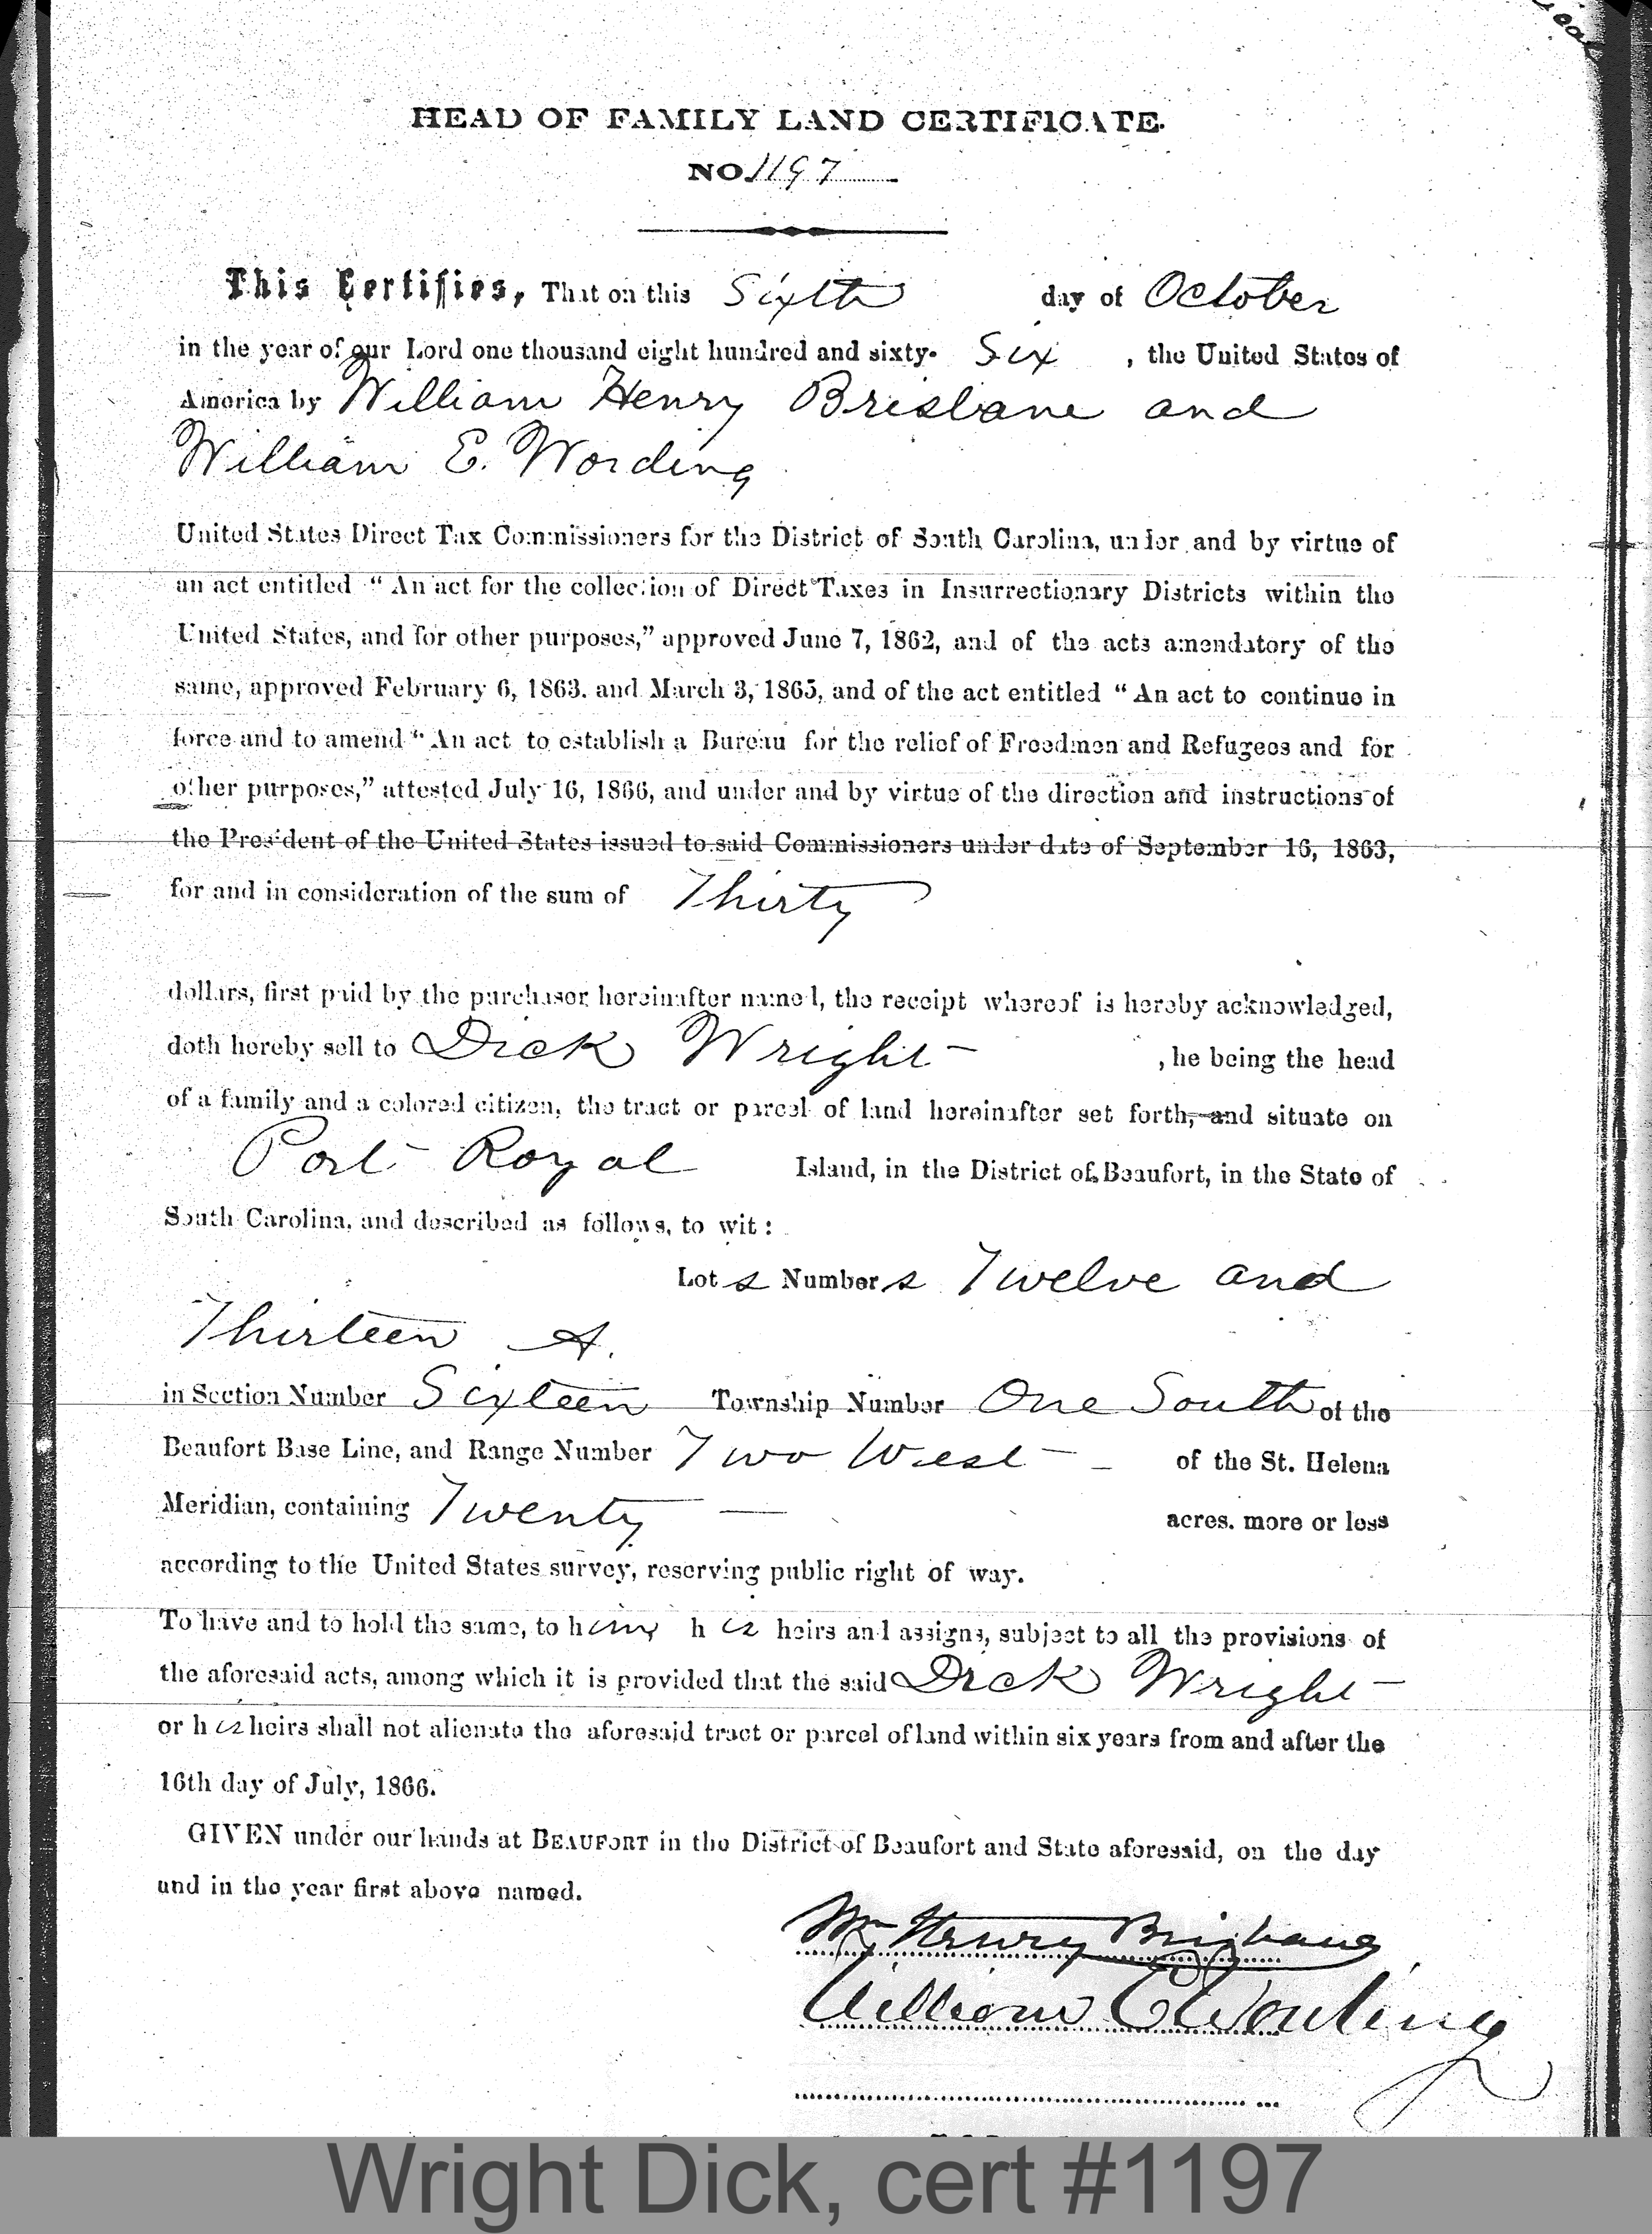 HEAD OF FAMILY LAND CERTIFICATE.
NO. 1197
This Certifies, That on this Sixth day of October
in the year of our Lord one thousand eight hundred and sixty- Six , the United States of
America by William Henry Brisbane and
William E. Wording
United States Direct Tax Commissioners for the District of South Carolina, under and by virtue of
an act entitled “ An act for the collection of Direct Taxes in Insurrectionary Districts within the
United States, and for other purposes,” approved June 7, 1862, and of the acts amendatory of the
same, approved February 6, 1863. and March 3, 1865, and of the act entitled “ An act to continue in
force and to amend “ An act to establish a Bureau for the relief of Freedmen and Refugees and for
other purposes,” attested July 16, 1866, and under and by virtue of the direction and instructions of
the President of the United States issued to said Commissioners under date of September 16, 1863,
for and in consideration of the sum of Thirty
dollars, first paid by the purchaser hereinafter named, the receipt whereof is hereby acknowledged,
doth hereby sell to Dick Wright , he being the head
of a family and a colored citizen, the tract or parcel of land hereinafter set forth, and situate on
Port Royal Island, in the District of Beaufort, in the State of
South Carolina, and described as follows, to wit :
Lots Numbers Twelve and
Thirteen A.
in Section Number Sixteen Township Number One South of the
Beaufort Base Line, and Range Number Two West of the St. Helena
Meridian, containing Twenty — acres. more or less
according to the United States survey, reserving public right of way.
To have and to hold the same, to him his heirs and assigns, subject to all the provisions of
the aforesaid acts, among which it is provided that the said Dick Wright
or his heirs shall not alienate the aforesaid tract or parcel of land within six years from and after the
16th day of July, 1866.
GIVEN under our hands at BEAUFORT in the District of Beaufort and State aforesaid, on the day
and in the year first above named.
Wm Henry Brisbane
William E Wording
Wright Dick, cert #1197